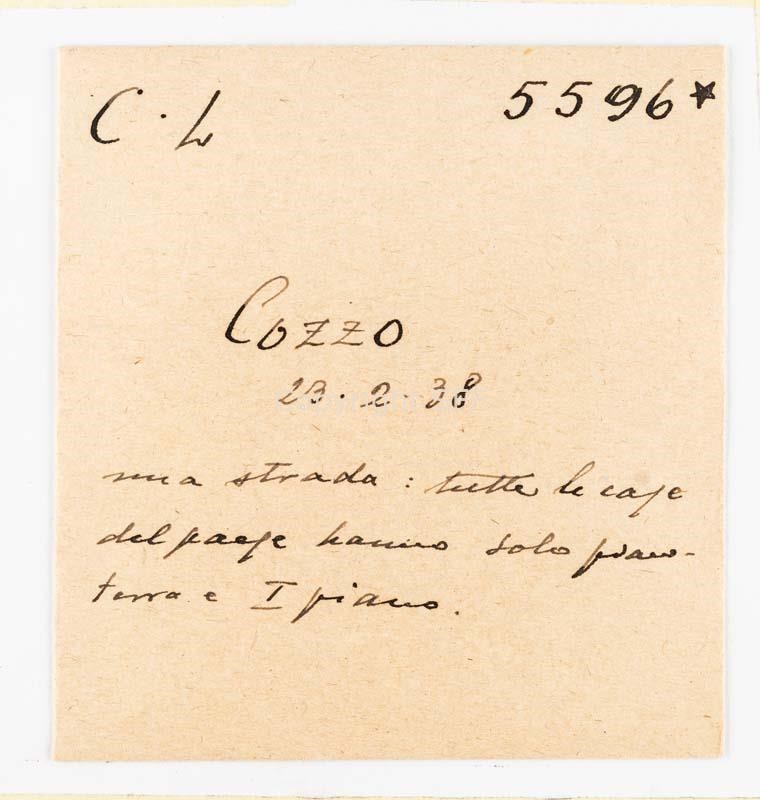 C. L 5596*
Cozzo
23.2.38
una strada: tutte le case
del paese hanno solo pian-
terra e I piano.